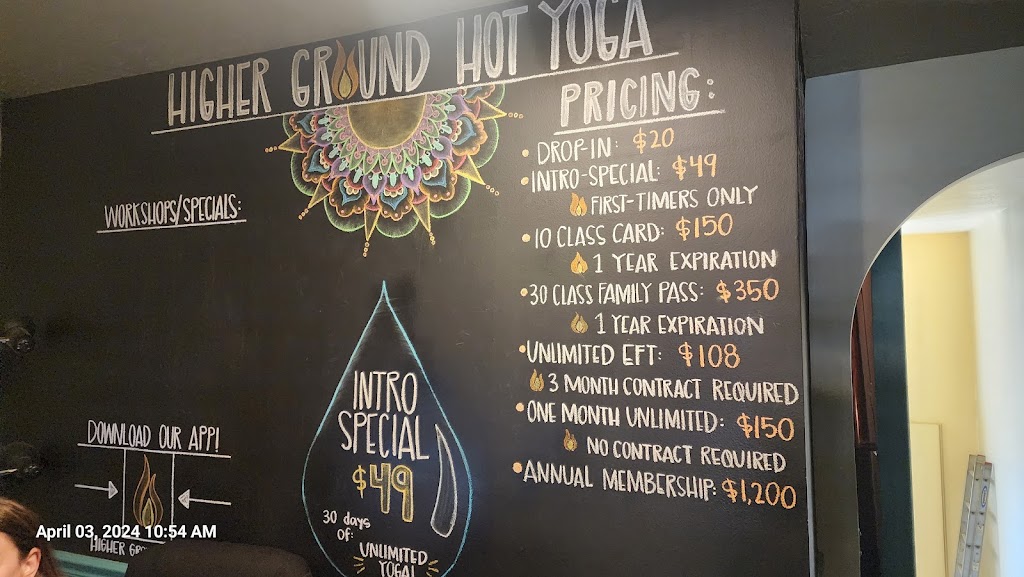 HIGHER GROUND HOT YOGA
WORKSHOPS/SPECIALS:
DOWNLOAD OUR APP!
HIGHER
April 03, 2024 10:54 AM
INTRO
SPECIAL
$49
30 days
of:
UNLIMITED
YOGA!
PRICING:
• DROP-IN: $20
• INTRO-SPECIAL: $49
FIRST-TIMERS ONLY
• 10 CLASS CARD: $150
1 YEAR EXPIRATION
• 30 CLASS FAMILY PASS: $350
1 YEAR EXPIRATION
• UNLIMITED EFT: $108
3 MONTH CONTRACT REQUIRED
• ONE MONTH UNLIMITED: $150
NO CONTRACT REQUIRED
• ANNUAL MEMBERSHIP: $1,200